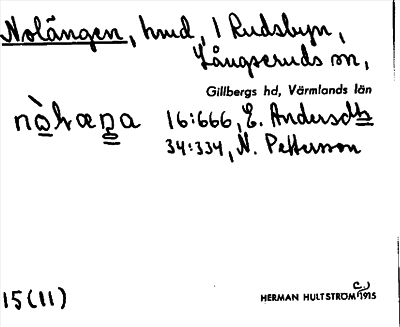 Nolängen, hmd, 1 Rudsbyn,
Långseruds sn,
Gillbergs hd, Värmlands län
16:666, E. Andersdts
34:334, N. Pettersson
15(11)
HERMAN HULTSTRÖM 1915